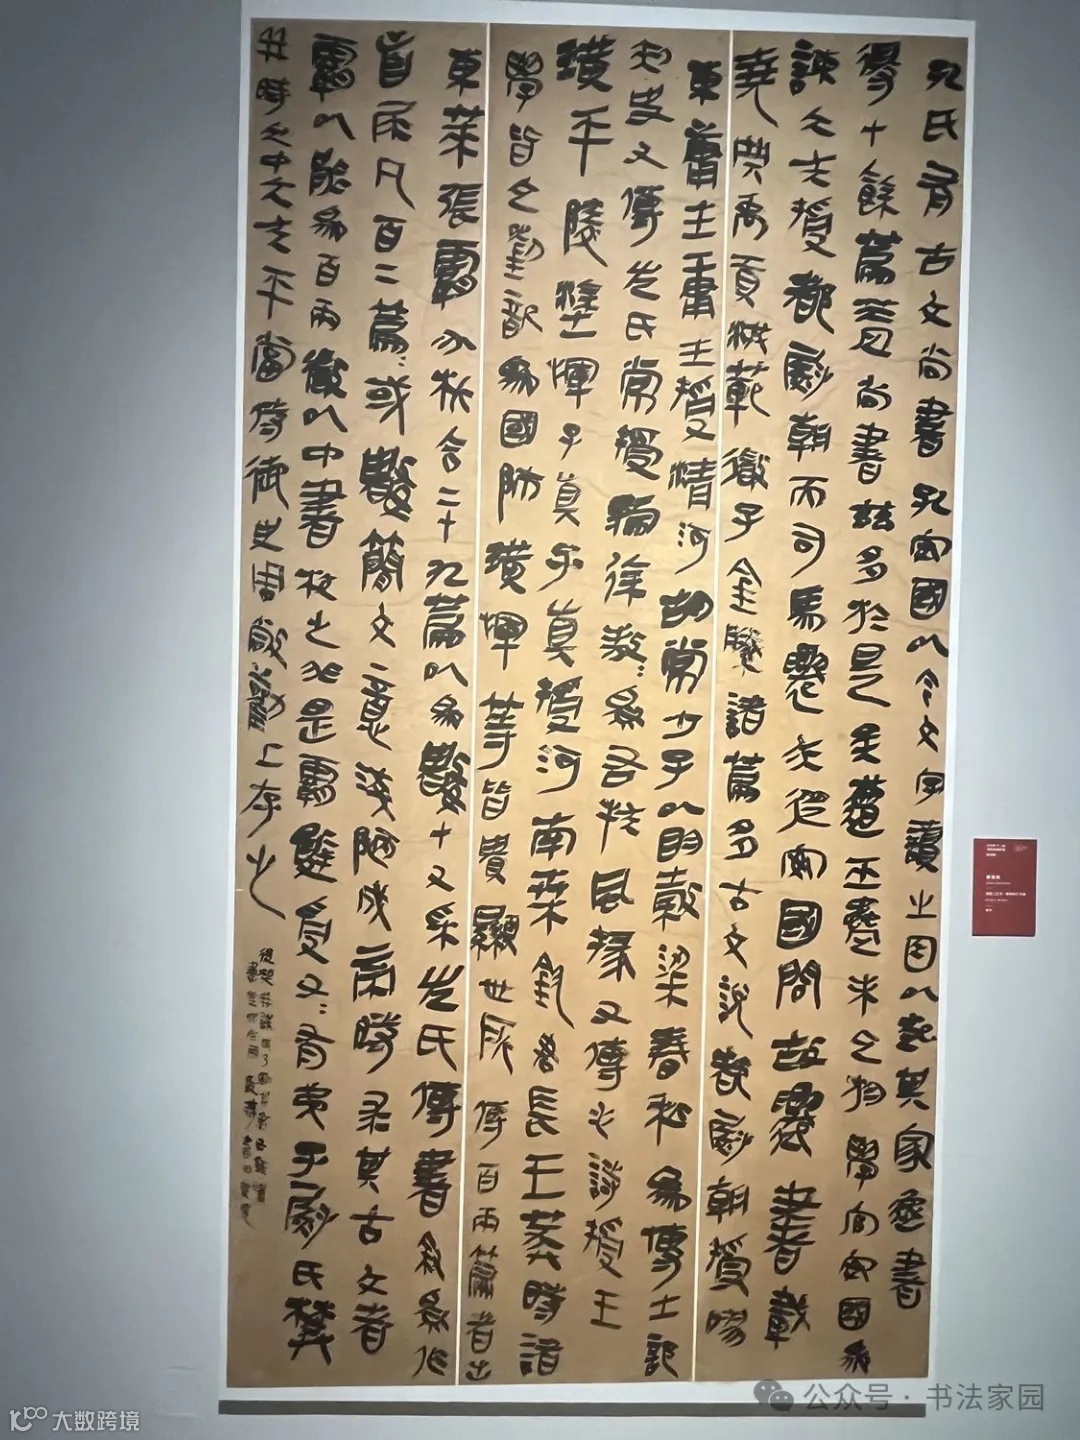 孔氏有古文尚書孔安國以今文字讀之因以起其家逸書
得十餘篇蓋尚書茲多於是矣遭巫蠱未立於學官安國為
諫大夫授都尉朝而司馬遷亦從安國問故遷書載
堯典禹貢洪範微子金縢諸篇多古文說都尉朝授膠
東庸生庸生授清河胡常少子以明穀梁春秋為博士部
刺史又傳左氏常授虢徐敖〻為右扶風掾又傳毛詩授王
璜平陵塗惲子真子真授河南桑欽君長王莽時諸
學皆立劉歆為國師璜惲等皆貴顯世所傳百兩篇者出
東萊張霸分析合二十九篇以為數十又采左氏傳書敘為作
首尾凡百二篇〻或數簡文意淺陋成帝時求其古文者
霸以能為百兩徵以中書校之非是霸辭受父〻有弟子尉氏樊
並時太中大夫平當侍御史周敞勸上存之
公众号·书法家园
大数跨境